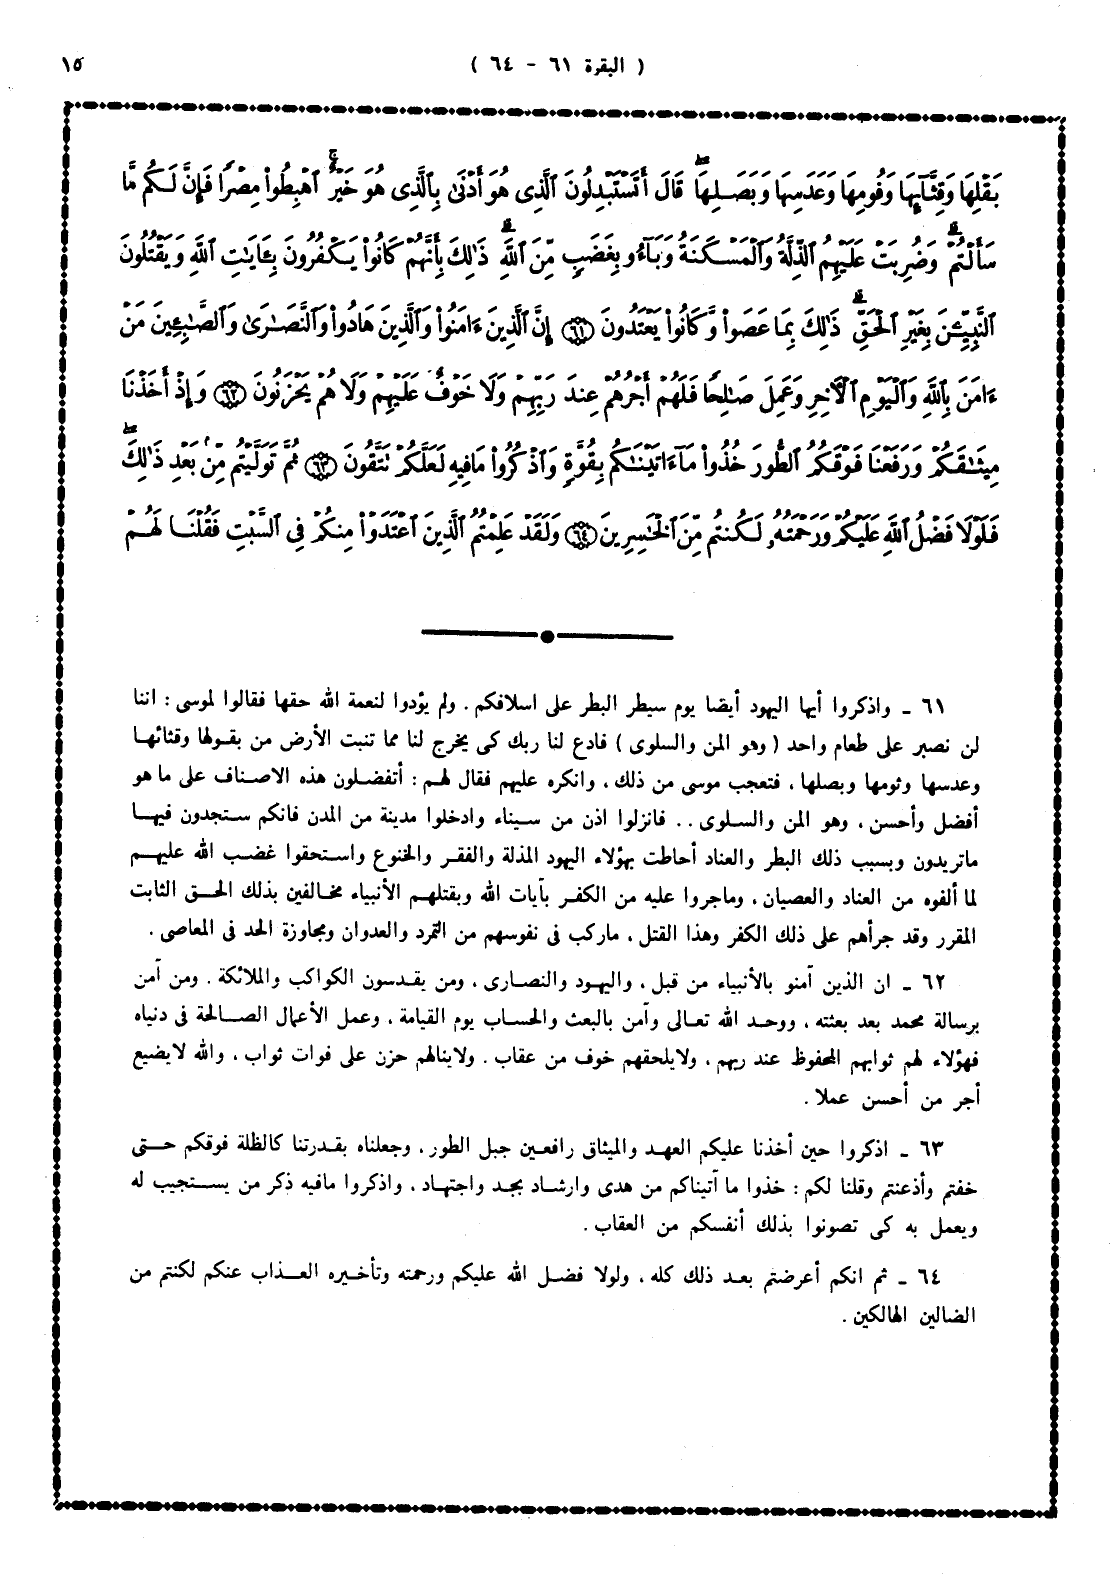 ( البقرة ٦١ - ٦٤ ) ١٥
بَقْلِهَا وَقِثَّآئِهَا وَفُومِهَا وَعَدَسِهَا وَبَصَلِهَا ۖ قَالَ أَتَسْتَبْدِلُونَ ٱلَّذِى هُوَ أَدْنَىٰ بِٱلَّذِى هُوَ خَيْرٌ ۚ ٱهْبِطُوا۟ مِصْرًا فَإِنَّ لَكُم مَّا
سَأَلْتُمْ ۗ وَضُرِبَتْ عَلَيْهِمُ ٱلذِّلَّةُ وَٱلْمَسْكَنَةُ وَبَآءُو بِغَضَبٍ مِّنَ ٱللَّهِ ۗ ذَٰلِكَ بِأَنَّهُمْ كَانُوا۟ يَكْفُرُونَ بِـَٔايَـٰتِ ٱللَّهِ وَيَقْتُلُونَ
ٱلنَّبِيِّـۧنَ بِغَيْرِ ٱلْحَقِّ ۗ ذَٰلِكَ بِمَا عَصَوا۟ وَّكَانُوا۟ يَعْتَدُونَ ٦١ إِنَّ ٱلَّذِينَ ءَامَنُوا۟ وَٱلَّذِينَ هَادُوا۟ وَٱلنَّصَـٰرَىٰ وَٱلصَّـٰبِـِٔينَ مَنْ
ءَامَنَ بِٱللَّهِ وَٱلْيَوْمِ ٱلْـَٔاخِرِ وَعَمِلَ صَـٰلِحًا فَلَهُمْ أَجْرُهُمْ عِندَ رَبِّهِمْ وَلَا خَوْفٌ عَلَيْهِمْ وَلَا هُمْ يَحْزَنُونَ ٦٢ وَإِذْ أَخَذْنَا
مِيثَـٰقَكُمْ وَرَفَعْنَا فَوْقَكُمُ ٱلطُّورَ خُذُوا۟ مَآ ءَاتَيْنَـٰكُم بِقُوَّةٍ وَٱذْكُرُوا۟ مَا فِيهِ لَعَلَّكُمْ تَتَّقُونَ ٦٣ ثُمَّ تَوَلَّيْتُم مِّنۢ بَعْدِ ذَٰلِكَ ۖ
فَلَوْلَا فَضْلُ ٱللَّهِ عَلَيْكُمْ وَرَحْمَتُهُۥ لَكُنتُم مِّنَ ٱلْخَـٰسِرِينَ ٦٤ وَلَقَدْ عَلِمْتُمُ ٱلَّذِينَ ٱعْتَدَوْا۟ مِنكُمْ فِى ٱلسَّبْتِ فَقُلْنَا لَهُمْ
٦١ ـ واذكروا أيها اليهود أيضا يوم سيطر البطر على اسلافكم . ولم يؤدوا لنعمة الله حقها فقالوا لموسى : اننا
لن نصبر على طعام واحد ( وهو المن والسلوى ) فادع لنا ربك كى يخرج لنا مما تنبت الأرض من بقولها وقثائها
وعدسها وثومها وبصلها ، فتعجب موسى من ذلك ، وانكره عليهم فقال لهم : أتفضلون هذه الاصناف على ما هو
أفضل وأحسن ، وهو المن والسلوى . . فانزلوا اذن من سيناء وادخلوا مدينة من المدن فانكم ستجدون فيها
ماتريدون وبسبب ذلك البطر والعناد أحاطت بهؤلاء اليهود المذلة والفقر والخنوع واستحقوا غضب الله عليهم
لما ألفوه من العناد والعصيان ، وماجروا عليه من الكفر بآيات الله وبقتلهم الأنبياء مخالفين بذلك الحق الثابت
المقرر وقد جرأهم على ذلك الكفر وهذا القتل ، ماركب فى نفوسهم من التمرد والعدوان ومجاوزة الحد فى المعاصى .
٦٢ ـ ان الذين آمنو بالأنبياء من قبل ، واليهود والنصارى ، ومن يقدسون الكواكب والملائكة . ومن آمن
برسالة محمد بعد بعثته ، ووحد الله تعالى وآمن بالبعث والحساب يوم القيامة ، وعمل الأعمال الصالحة فى دنياه
فهؤلاء لهم ثوابهم المحفوظ عند ربهم ، ولايلحقهم خوف من عقاب . ولاينالهم حزن على فوات ثواب ، والله لايضيع
أجر من أحسن عملا .
٦٣ ـ اذكروا حين أخذنا عليكم العهد والميثاق رافعين جبل الطور ، وجعلناه بقدرتنا كالظلة فوقكم حتى
خفتم وأذعنتم وقلنا لكم : خذوا ما آتيناكم من هدى وارشاد بجد واجتهاد ، واذكروا مافيه ذكر من يستجيب له
ويعمل به كى تصونوا بذلك أنفسكم من العقاب .
٦٤ ـ ثم انكم أعرضتم بعد ذلك كله ، ولولا فضل الله عليكم ورحمته وتأخيره العذاب عنكم لكنتم من
الضالين الهالكين .